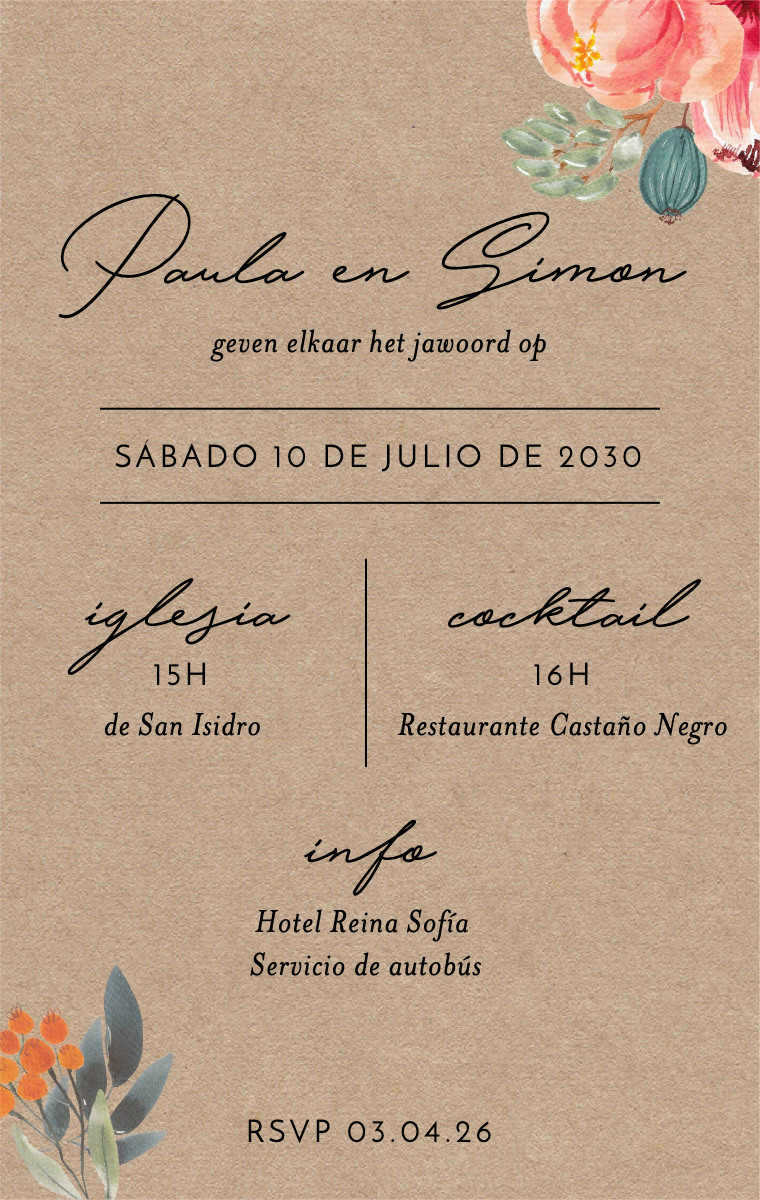 Paula en Simon
geven elkaar het jawoord op
SÁBADO 10 DE JULIO DE 2030
iglesia
15H
de San Isidro
cocktail
16H
Restaurante Castaño Negro
info
Hotel Reina Sofía
Servicio de autobús
RSVP 03.04.26